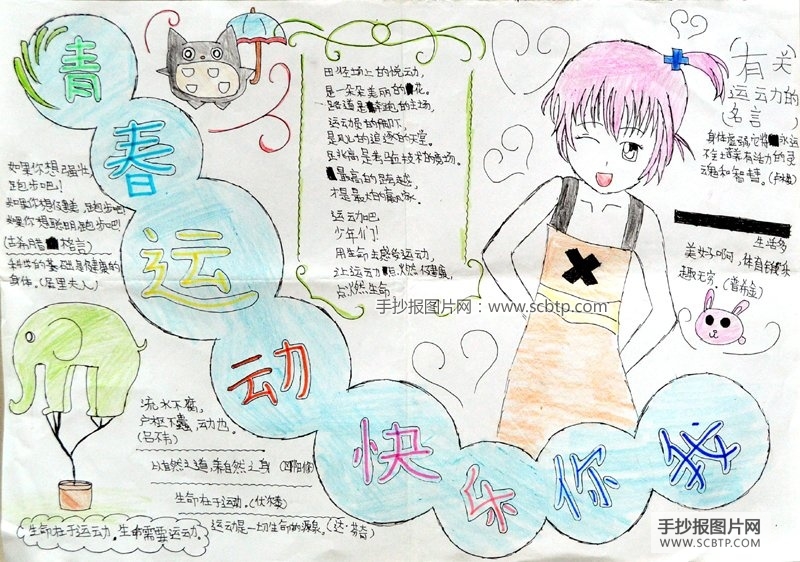 青春运动快乐你我
如果你想强壮，
跑步吧！
如果你想健美，跑步吧！
如果你想聪明，跑步吧！
(古希腊格言)
科学的基础是健康的
身体。(居里夫人)
田径场上的悦动，
是一朵朵美丽的花。
跑道是奔跑的主场，
运动员的脚下，
是风的追逐的天堂。
跳高是考验技术的广场。
最高的跨越，
才是最大的赢家。
运动吧
少年们！
用生命去感受运动，
让运动点燃健康，
点燃生命
有关
运动的
名言
身体虚弱，它将永远
不会培养有活力的灵
魂和智慧。(卢梭)
生活多
美好啊，体育锻炼
趣无穷。(普希金)
手抄报图片网：www.scbtp.com
流水不腐，
户枢不蠹，动也。
(吕不韦)
以自然之道，养自然之身 (欧阳修)
生命在于运动。(伏尔泰)
运动是一切生命的源泉。(达·芬奇)
生命在于运动。生命需要运动。
手抄报图片网
WWW.SCBTP.COM